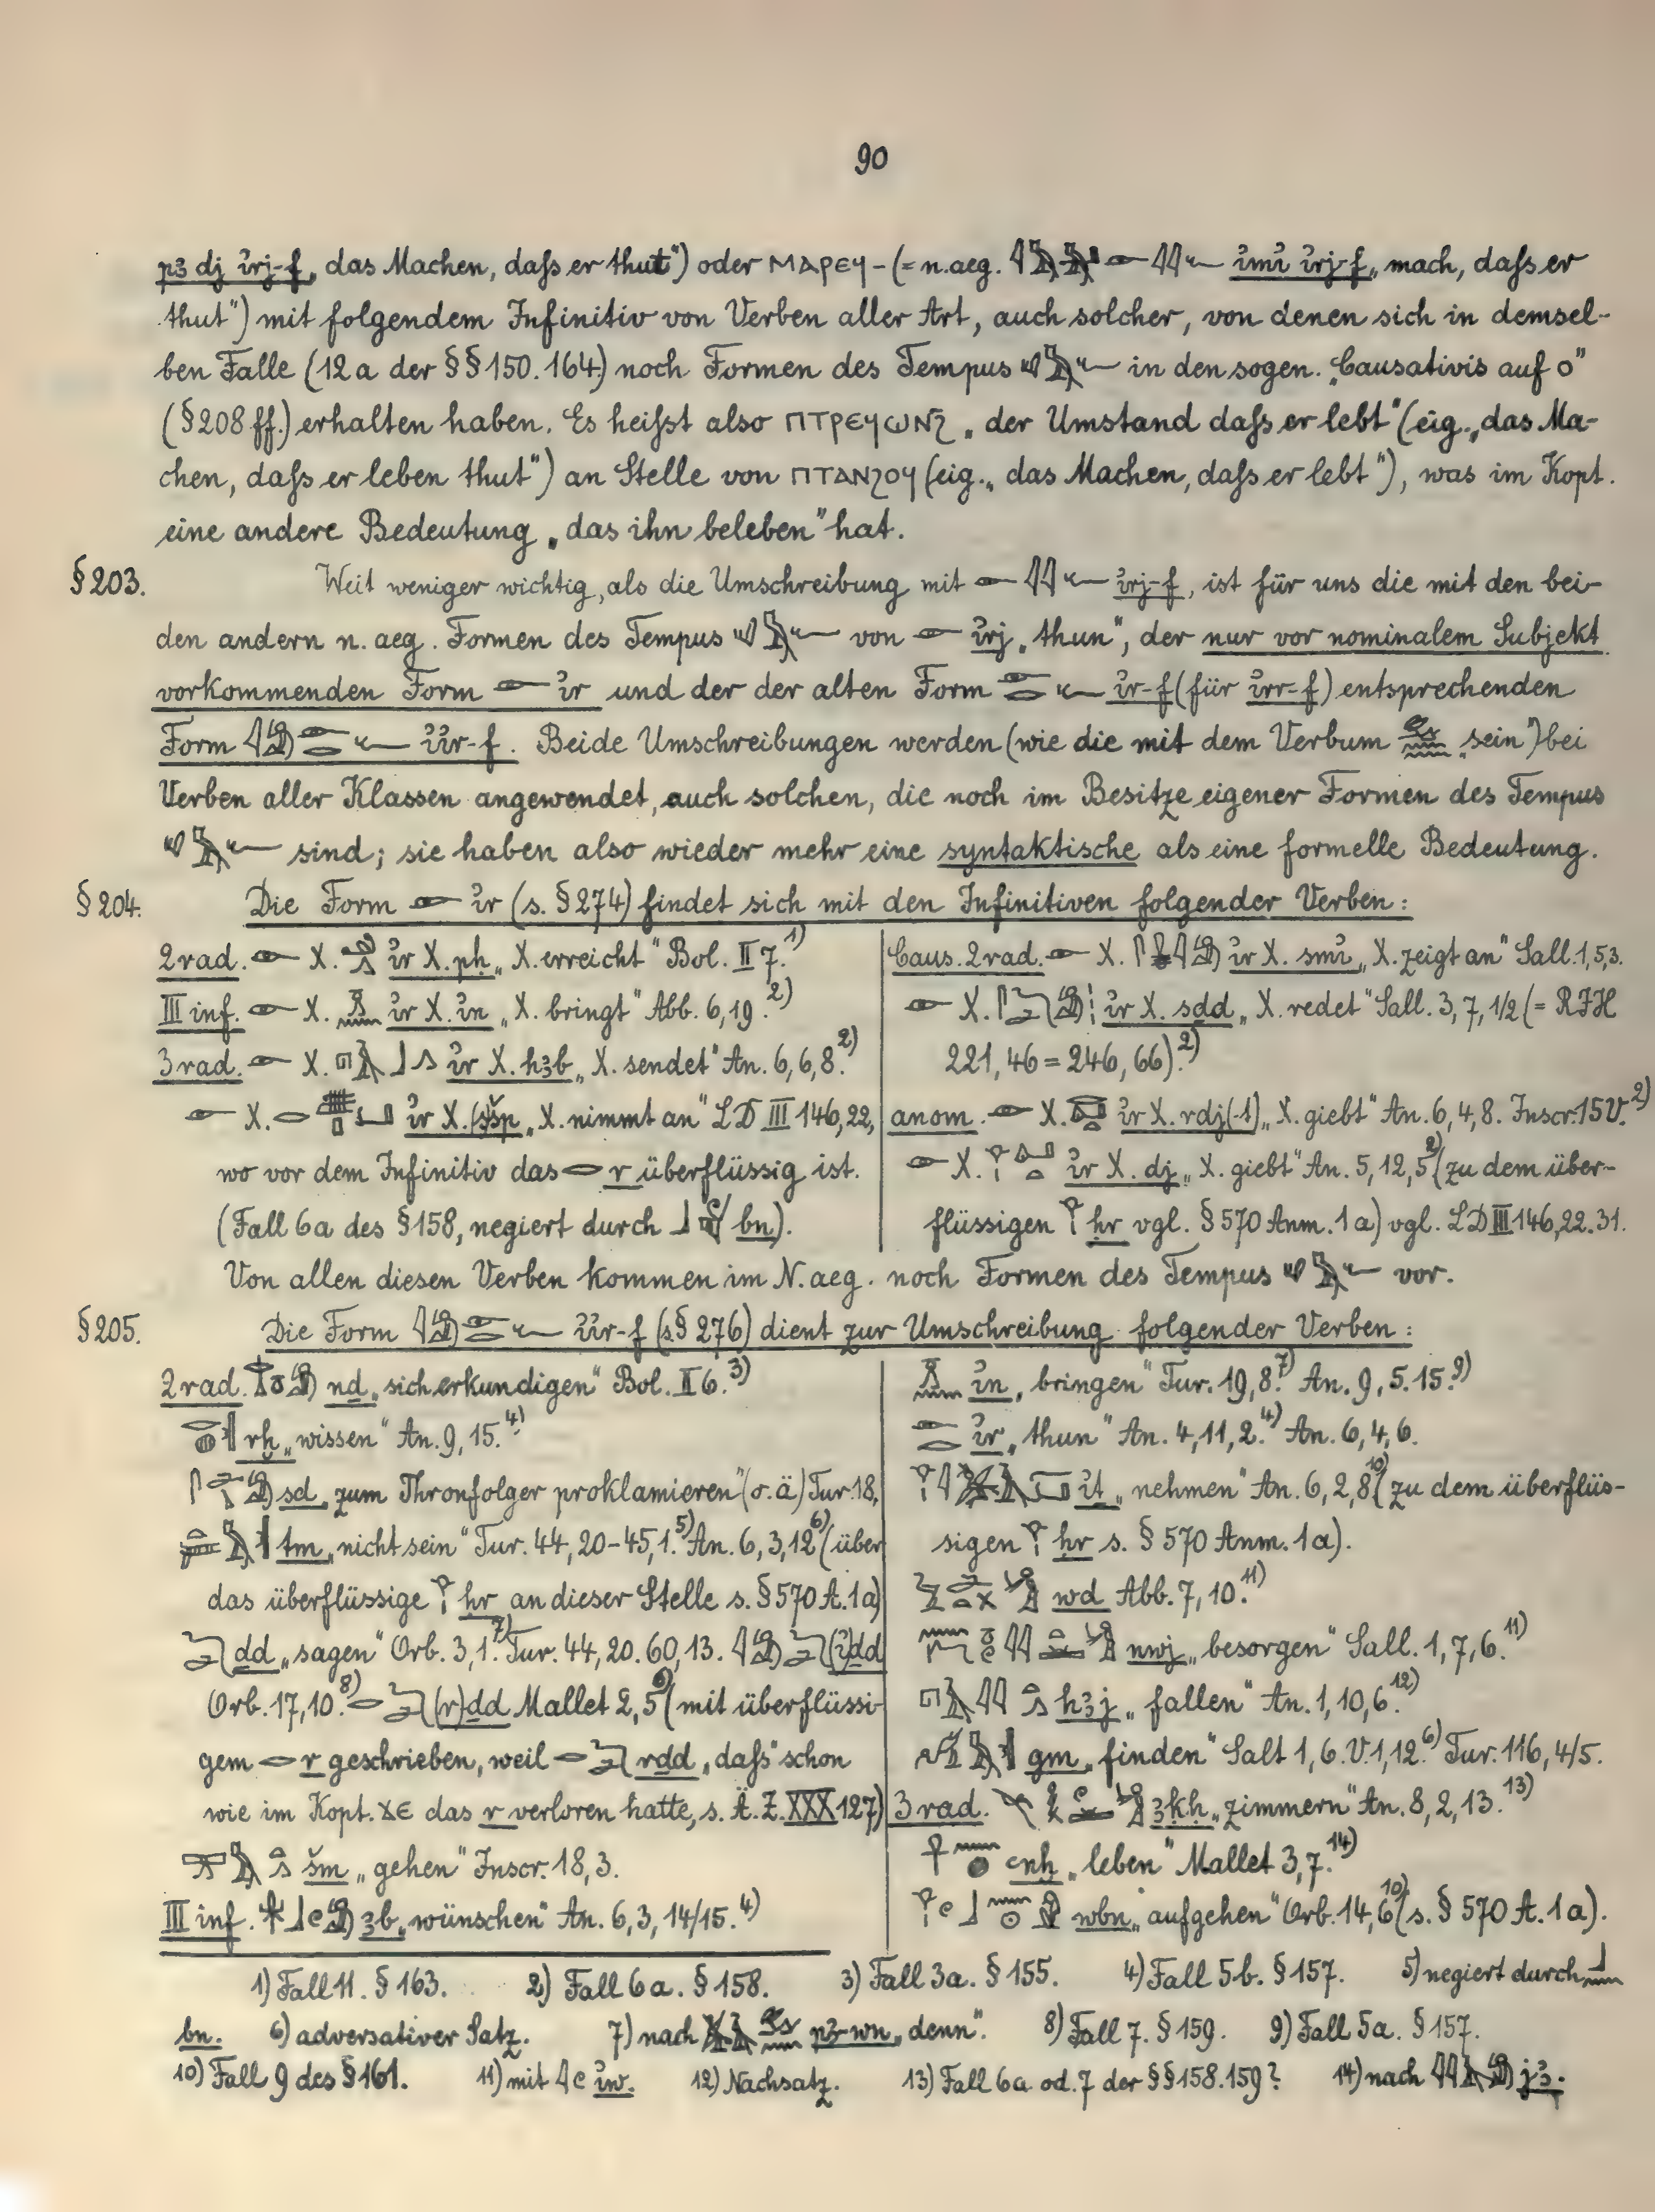 90
pꜣ dj ı̓rj-f „das Machen, daſs er thut“) oder ⲘⲀⲢⲈϤ- (= n.aeg. ı̓mı̓ ı̓rj-f „mach, daſs er
thut“) mit folgendem Infinitiv von Verben aller Art, auch solcher, von denen sich in demsel-
ben Falle (12a der §§150.164) noch Formen des Tempus in den sogen. „Causativis auf o“
(§208ff.) erhalten haben. Es heiſst also ⲠⲦⲢⲈϤⲰⲚϨ „der Umstand daſs er lebt“ (eig. „das Ma-
chen, daſs er leben thut“) an Stelle von ⲠⲦⲀⲚϨⲞϤ (eig. „das Machen, daſs er lebt“), was im Kopt.
eine andere Bedeutung „das ihn beleben“ hat.
§203. Weit weniger wichtig, als die Umschreibung mit ı̓rj-f, ist für uns die mit den bei-
den andern n.aeg. Formen des Tempus von ı̓rj „thun“, der nur vor nominalem Subjekt
vorkommenden Form ı̓r und der der alten Form ı̓r-f (für ı̓rr-f) entsprechenden
Form ı̓ı̓r-f. Beide Umschreibungen werden (wie die mit dem Verbum „sein“) bei
Verben aller Klassen angewendet, auch solchen, die noch im Besitze eigener Formen des Tempus
sind; sie haben also wieder mehr eine syntaktische als eine formelle Bedeutung.
§204. Die Form ı̓r (s. §274) findet sich mit den Infinitiven folgender Verben:
2rad. X. ı̓r X. pḥ „X. erreicht“ Bol. II 7.¹⁾
III inf. X. ı̓r X. ı̓n „X. bringt“ Abb. 6,19.²⁾
3rad. X. ı̓r X. hꜣb „X. sendet“ An. 6,6,8.²⁾
X. ı̓r X. (s)šp „X. nimmt an“ LD III 146,22,
wo vor dem Infinitiv das r überflüssig ist.
(Fall 6a des §158, negiert durch bn).
Caus. 2rad. X. ı̓r X. smı̓ „X. zeigt an“ Sall. 1,5,3.
X. ı̓r X. sḏd „X. redet“ Sall. 3,7,1/2 (= RIH
221,46 = 246,66).²⁾
anom. X. ı̓r X. rdj(-t) „X. giebt“ An. 6,4,8. Inscr. 15V.²⁾
X. ı̓r X. dj „X. giebt“ An. 5,12,5²⁾ (zu dem über-
flüssigen ḥr vgl. §570 Anm. 1a) vgl. LD III 146,22.31.
Von allen diesen Verben kommen im N.aeg. noch Formen des Tempus vor.
§205. Die Form ı̓ı̓r-f (s. §276) dient zur Umschreibung folgender Verben:
2rad. nḏ „sich erkundigen“ Bol. II 6.³⁾
rḫ „wissen“ An. 9,15.⁴⁾
sḏ „zum Thronfolger proklamieren“ (o.ä) Tur. 18,
tm „nicht sein“ Tur. 44,20-45,1.⁵⁾ An. 6,3,12⁶⁾ (über
das überflüssige ḥr an dieser Stelle s. §570 A. 1a)
ḏd „sagen“ Orb. 3,1.⁷⁾ Tur. 44,20. 60,13. (ı̓)ḏd
Orb. 17,10.⁸⁾ (r)ḏd Mallet 2,5⁹⁾ (mit überflüssi-
gem r geschrieben, weil rḏd „daſs“ schon
wie im Kopt. ϪⲈ das r verloren hatte, s. Ä.Z. XXX 127)
šm „gehen“ Inscr. 18,3.
III inf. ꜣb „wünschen“ An. 6,3,14/15.⁴⁾
ı̓n „bringen“ Tur. 19,8.⁷⁾ An. 9,5.15.⁹⁾
ı̓r „thun“ An. 4,11,2.⁴⁾ An. 6,4,6.
ı̓ṯ „nehmen“ An. 6,2,8¹⁰⁾ (zu dem überflüs-
sigen ḥr s. §570 Anm. 1a).
wḏ Abb. 7,10.¹¹⁾
nwj „besorgen“ Sall. 1,7,6.¹¹⁾
hꜣj „fallen“ An. 1,10,6.¹²⁾
gm „finden“ Salt 1,6. V.1,12.⁶⁾ Tur. 116,4/5.
3rad. ꜣkḥ „zimmern“ An. 8,2,13.¹³⁾
ꜥnḫ „leben“ Mallet 3,7.¹⁴⁾
wbn „aufgehen“ (Orb. 14,6¹⁰⁾ (s. §570 A. 1a).
1) Fall 11. §163. 2) Fall 6a. §158. 3) Fall 3a. §155. 4) Fall 5b. §157. 5) negiert durch
bn. 6) adversativer Satz. 7) nach pꜣ-wn „denn“. 8) Fall 7. §159. 9) Fall 5a. §157.
10) Fall 9 des §161. 11) mit ı̓w. 12) Nachsatz. 13) Fall 6a od. 7 der §§158.159? 14) nach jꜣ.